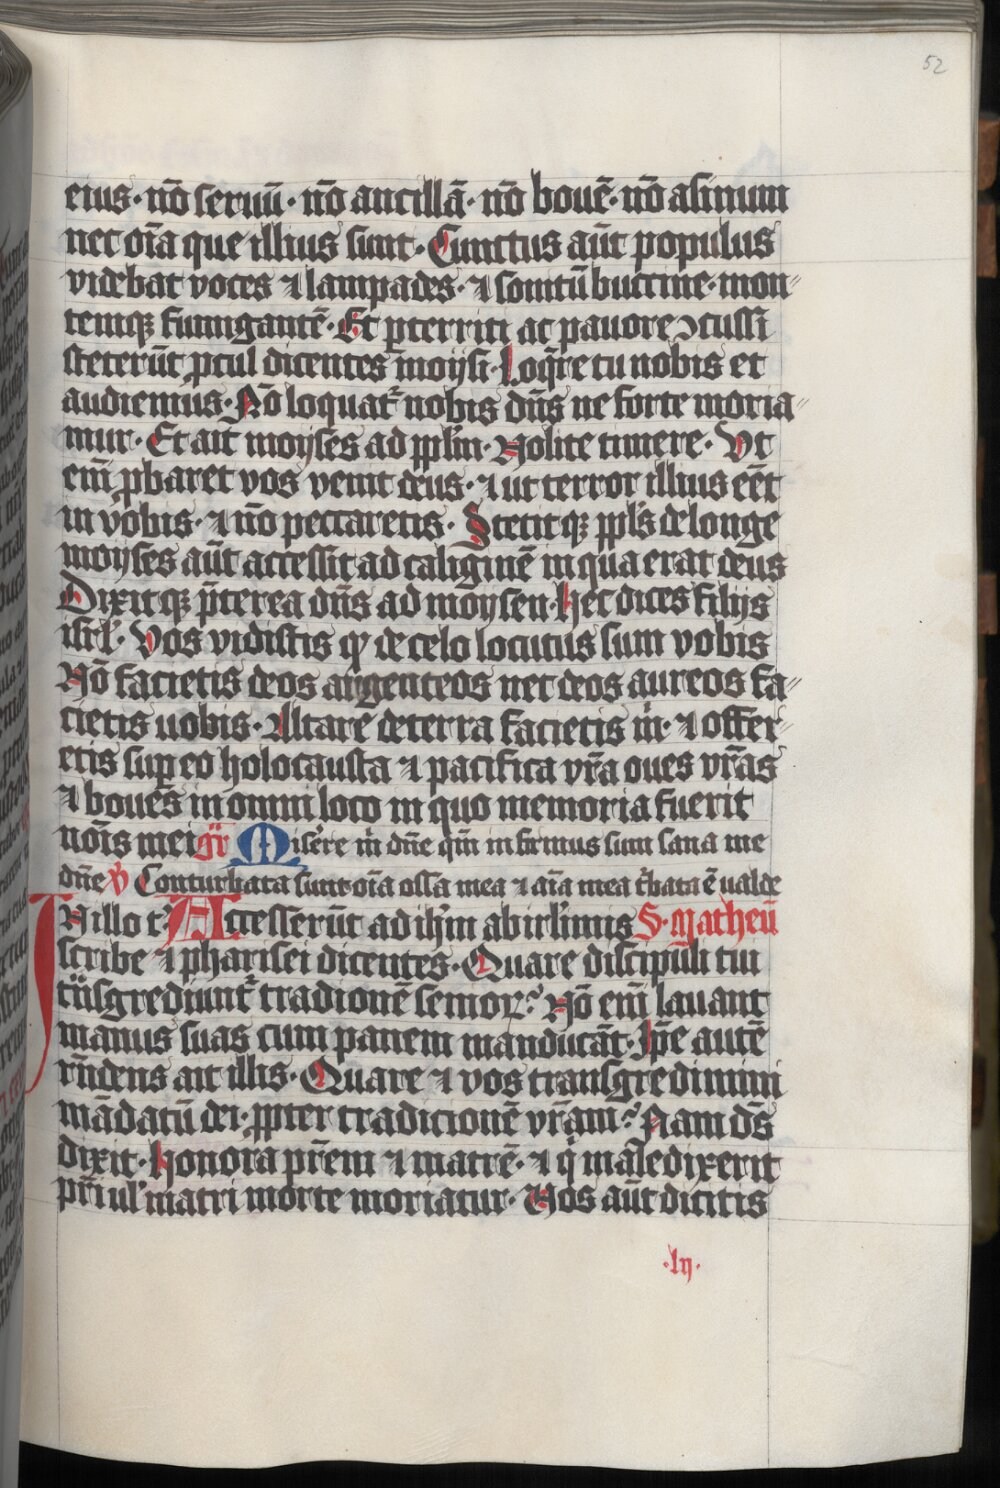 52
eius · nō seruū · nō ancillā · nō bouē · nō asinum
nec oīa que illius sunt · Cunctus aūt populus
videbat voces ⁊ lampades · ⁊ sonitū buccine · mon
temqꝫ fumigantē · Et ꝑterriti ac pauore ꝯcussi
steterūt ꝓcul dicentes moysi · Loq̄re tu nobis et
audiemus · Nō loquat᷑ nobis dn̄s ne forte moria
mur · Et ait moyses ad ppl̄m · Nolite timere · Vt
em̄ ꝓbaret vos venit deus · ⁊ ut terror illius eēt
in vobis · ⁊ nō peccaretis · Stetitqꝫ ppl̄s de longe
moyses aūt accessit ad caliginē in qua erat deus
Dixitqꝫ p̄terea dn̄s ad moysen · Hec dices filijs
isrl̄ · Vos vidistis ꝙ de celo locutus sum vobis
Nō facietis deos argenteos nec deos aureos fa
cietis uobis · Altare de terra facietis m̄ · ⁊ offer
etis suꝑ eo holocausta ⁊ pacifica vr̄a oues vr̄as
⁊ boues in omni loco in quo memoria fuerit
nōis mei gr̄ Misere m̄ dn̄e qm̄ infirmus sum sana me
dn̄e ꝟ Conturbata sunt oīa ossa mea ⁊ aīa mea t̄bata ē ualde
IN illo t᷑ Accesserūt ad ih̄m ab irl̄imis S · Matheū
scribe ⁊ pharisei dicentes · Quare discipuli tui
tn̄sgrediunt᷑ tradionē senioꝝ? Nō em̄ lauant
manus suas cum panem manducāt · Ip̄e autē
rn̄dens ait illis · Quare ⁊ vos transgredimini
mādatū dei · ꝓpter tradicionē vr̄am? Nam ds̄
dixit · Honora pr̄em ⁊ matrē · ⁊ qͥ maledixerit
pr̄i ul̓ matri morte moriatur · Vos aūt dicitis
· lij ·